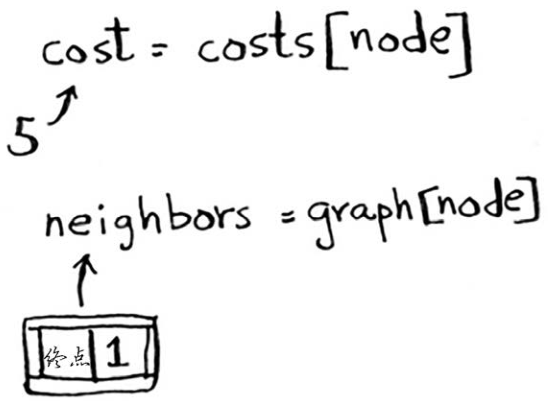 cost = costs[node]
5
neighbors = graph[node]
终点 1